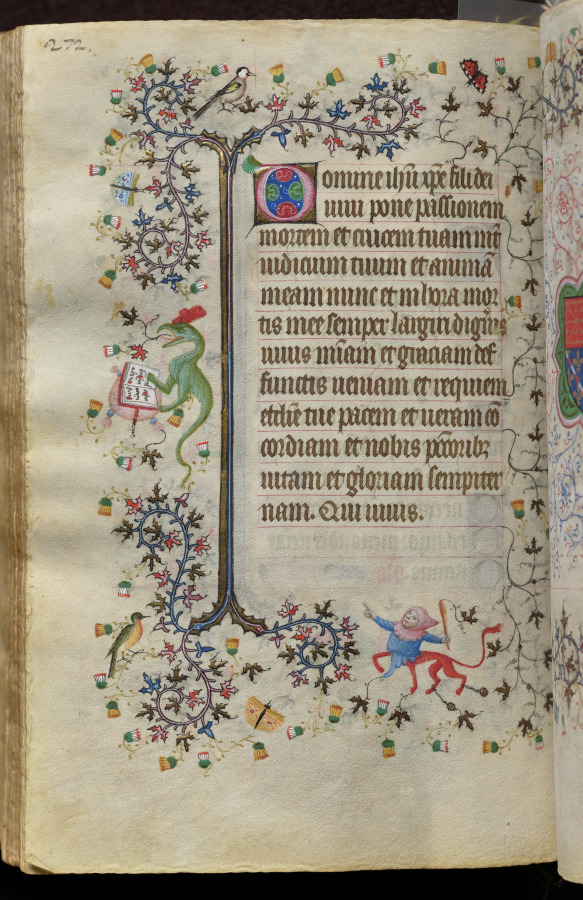 272.
Domine ihu xpe fili dei
uiui pone passionem
mortem et crucem tuam int̄
iudicium tuum et animā
meam nunc et in hora mor
tis mee semper largiri digneris
uiuis miam et graciam def
functis ueniam et requiem
ecclie tue pacem et ueram cō
cordiam et nobis pccoribz
uitam et gloriam sempiter
nam. Qui uiuis.